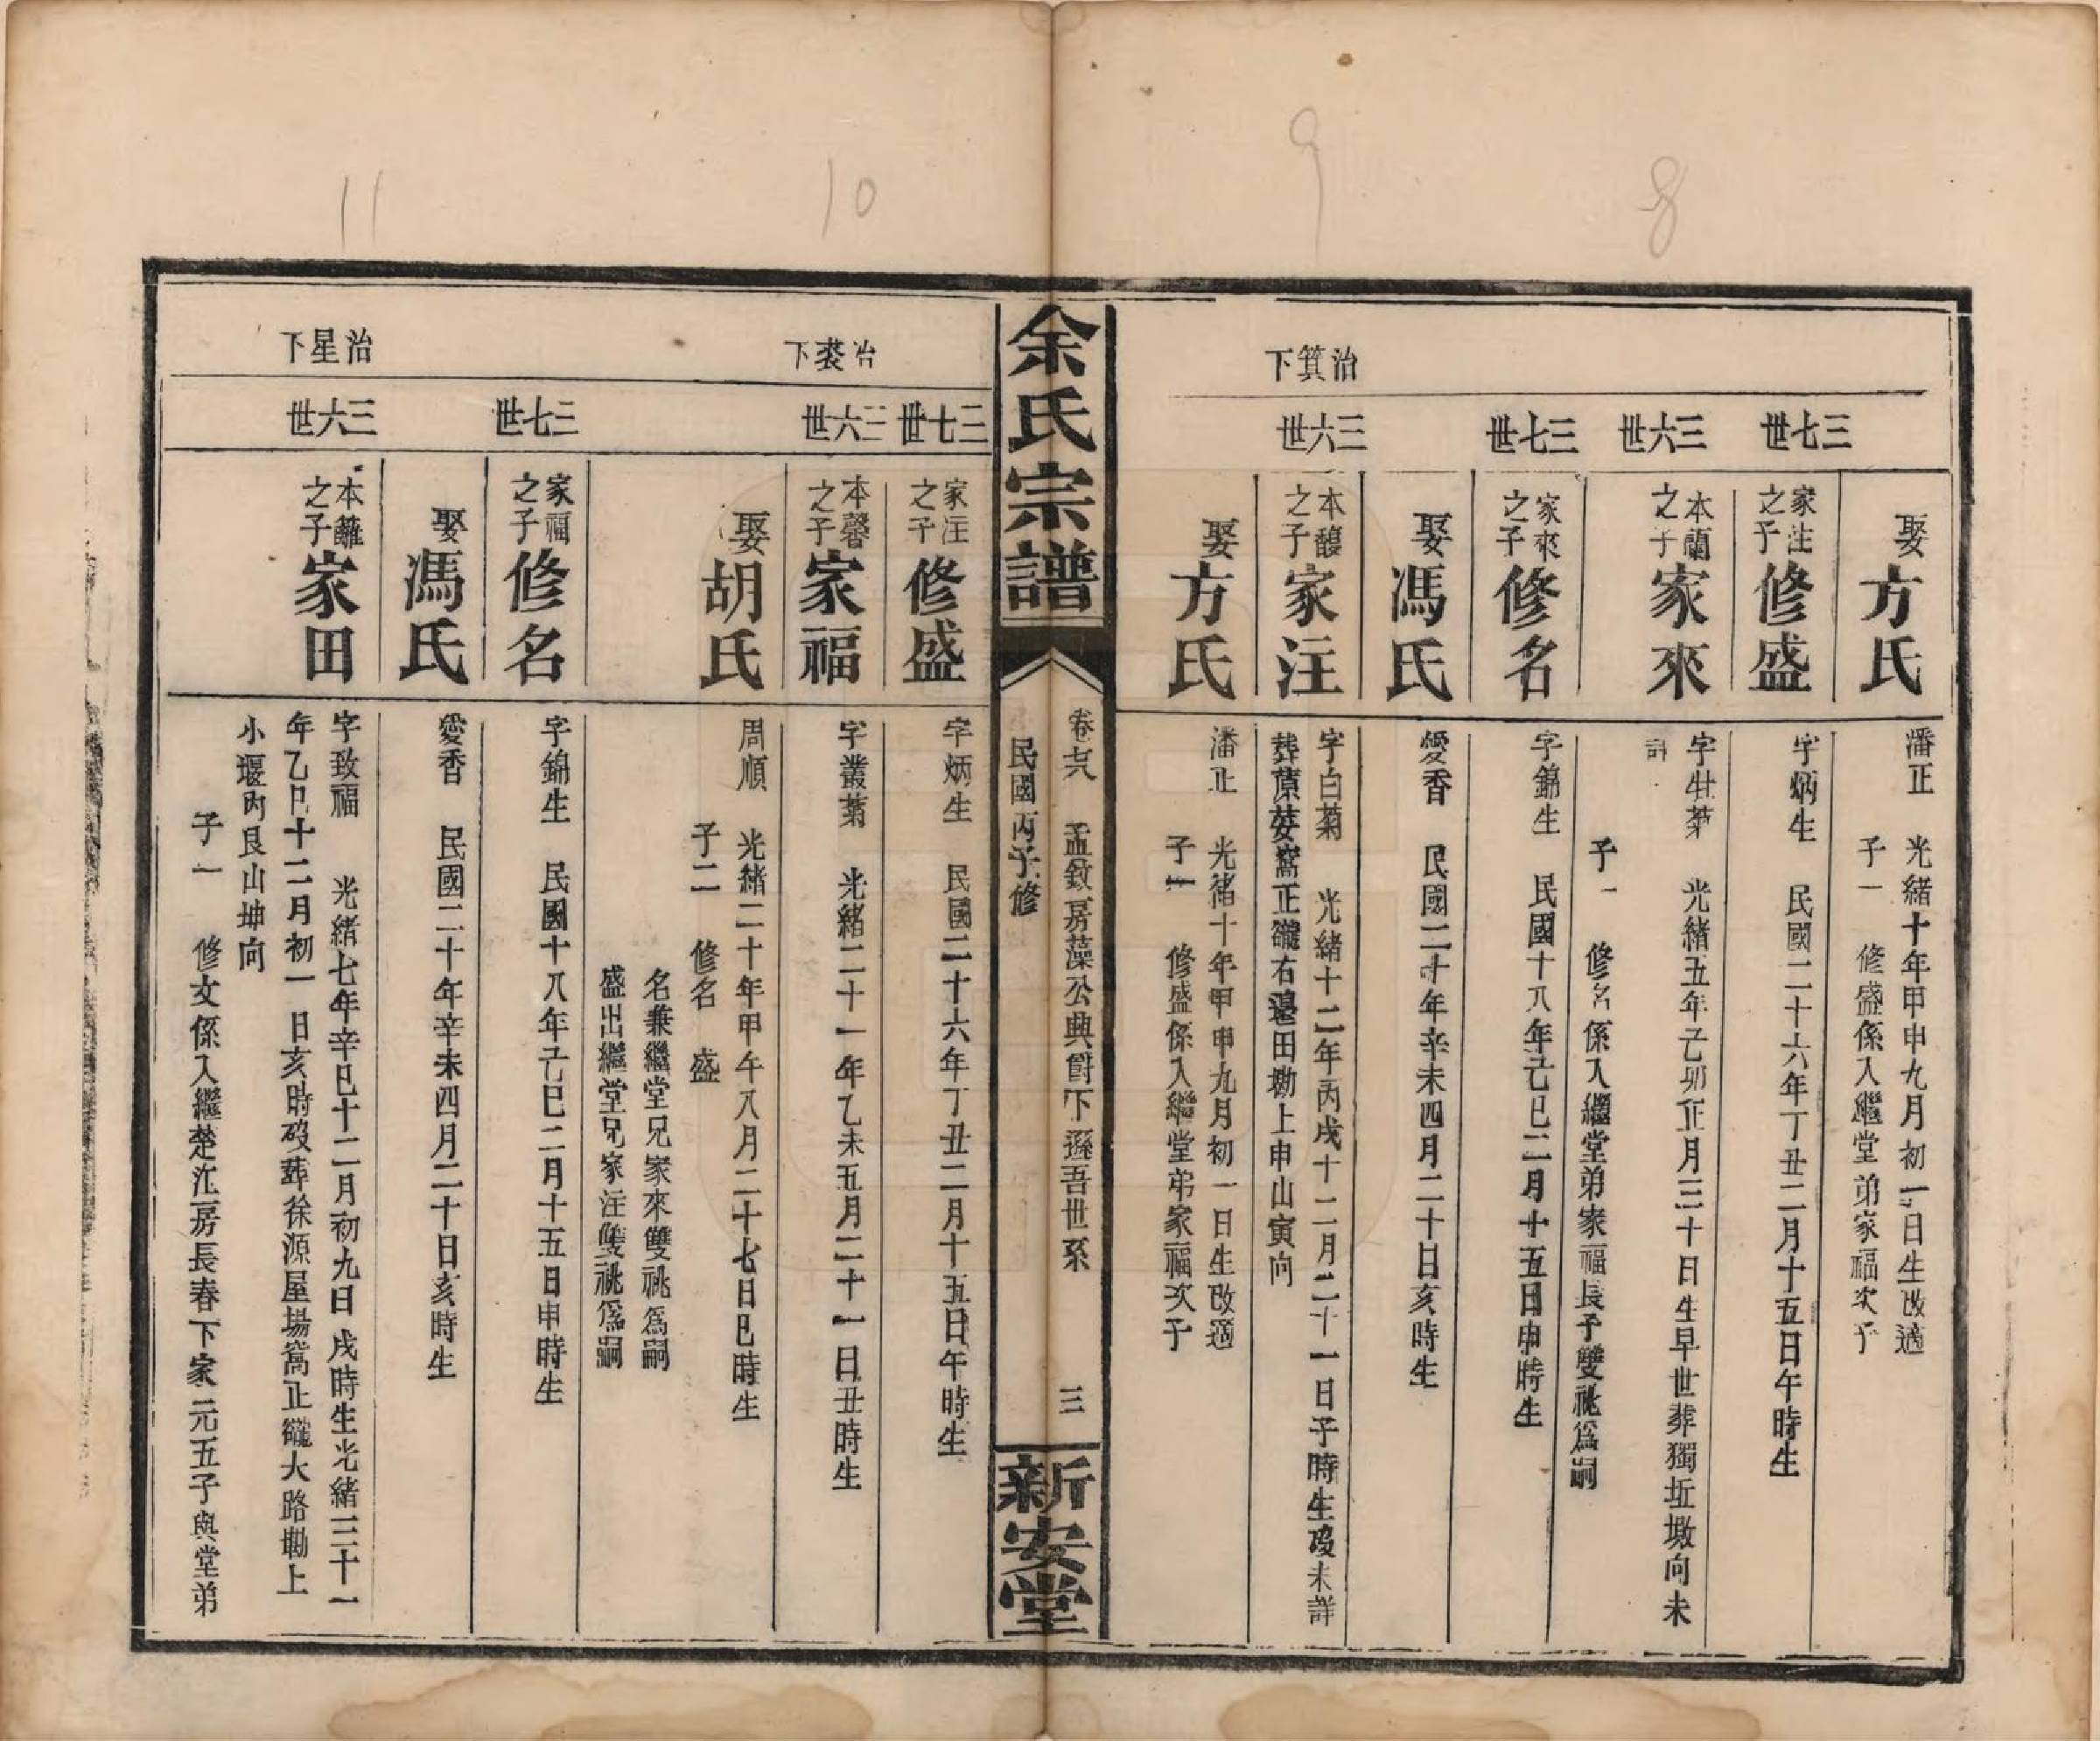 8
9
10
11
娶方氏
潘正　光緒十年甲申九月初一日生改適
子一　修盛係入繼堂弟家福次子
三七世
家注之子修盛
字炳生　民國二十六年丁丑二月十五日午時生
三六世
本蘭之子家來
字牡菊　光緒五年己卯正月三十日生早世葬獨坵墩向未
詳
子一　修名係入繼堂弟家福長子雙祧爲嗣
三七世
家來之子修名
字錦生　民國十八年己巳二月十五日申時生
娶馮氏
愛香　民國二十年辛未四月二十日亥時生
治箕下
三六世
本馥之子家注
字白菊　光緒十二年丙戌十二月二十一日子時生歿未詳
葬原婆窩正龍右邊田塝上申山寅向
娶方氏
潘正　光緒十年甲申九月初一日生改適
子一　修盛係入繼堂弟家福次子
余氏宗譜
卷六　孟敘房藻公典爵下遜吾世系　三
民國丙子修
新安堂
三七世
家注之子修盛
字炳生　民國二十六年丁丑二月十五日午時生
治裘下
三六世
本馨之子家福
字叢菊　光緒二十一年乙未五月二十一日丑時生
娶胡氏
周順　光緒二十年甲午八月二十七日巳時生
子二　修名　盛
名兼繼堂兄家來雙祧爲嗣
盛出繼堂兄家注雙祧爲嗣
三七世
家福之子修名
字錦生　民國十八年己巳二月十五日申時生
娶馮氏
愛香　民國二十年辛未四月二十日亥時生
治星下
三六世
本蘿之子家田
字致福　光緒七年辛巳十二月初九日戌時生光緒三十一
年乙巳十二月初一日亥時歿葬徐源屋場窩正龍大路塝上
小堰內艮山坤向
子一　修文係入繼楚江房長春下家元五子與堂弟